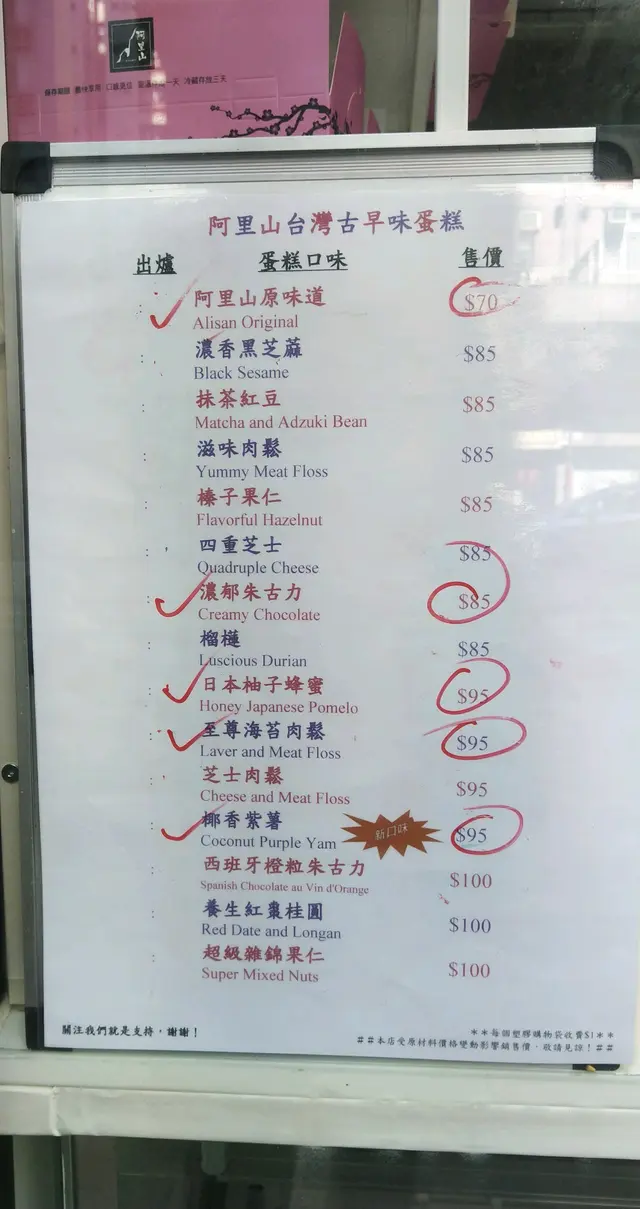 阿里山
保存期限 盡快享用 口感見佳 室溫存放一天 冷藏存放三天
阿里山台灣古早味蛋糕
出爐 蛋糕口味 售價
: 阿里山原味道 $70
Alisan Original
: 濃香黑芝蔴 $85
Black Sesame
: 抹茶紅豆 $85
Matcha and Adzuki Bean
: 滋味肉鬆 $85
Yummy Meat Floss
: 榛子果仁 $85
Flavorful Hazelnut
: 四重芝士 $85
Quadruple Cheese
: 濃郁朱古力 $85
Creamy Chocolate
: 榴槤 $85
Luscious Durian
: 日本柚子蜂蜜 $95
Honey Japanese Pomelo
: 至尊海苔肉鬆 $95
Laver and Meat Floss
: 芝士肉鬆 $95
Cheese and Meat Floss
: 椰香紫薯 新口味 $95
Coconut Purple Yam
: 西班牙橙粒朱古力 $100
Spanish Chocolate au Vin d'Orange
: 養生紅棗桂圓 $100
Red Date and Longan
: 超級雜錦果仁 $100
Super Mixed Nuts
關注我們就是支持，謝謝！
**每個塑膠購物袋收費$1**
##本店受原材料價格變動影響銷售價，敬請見諒！##